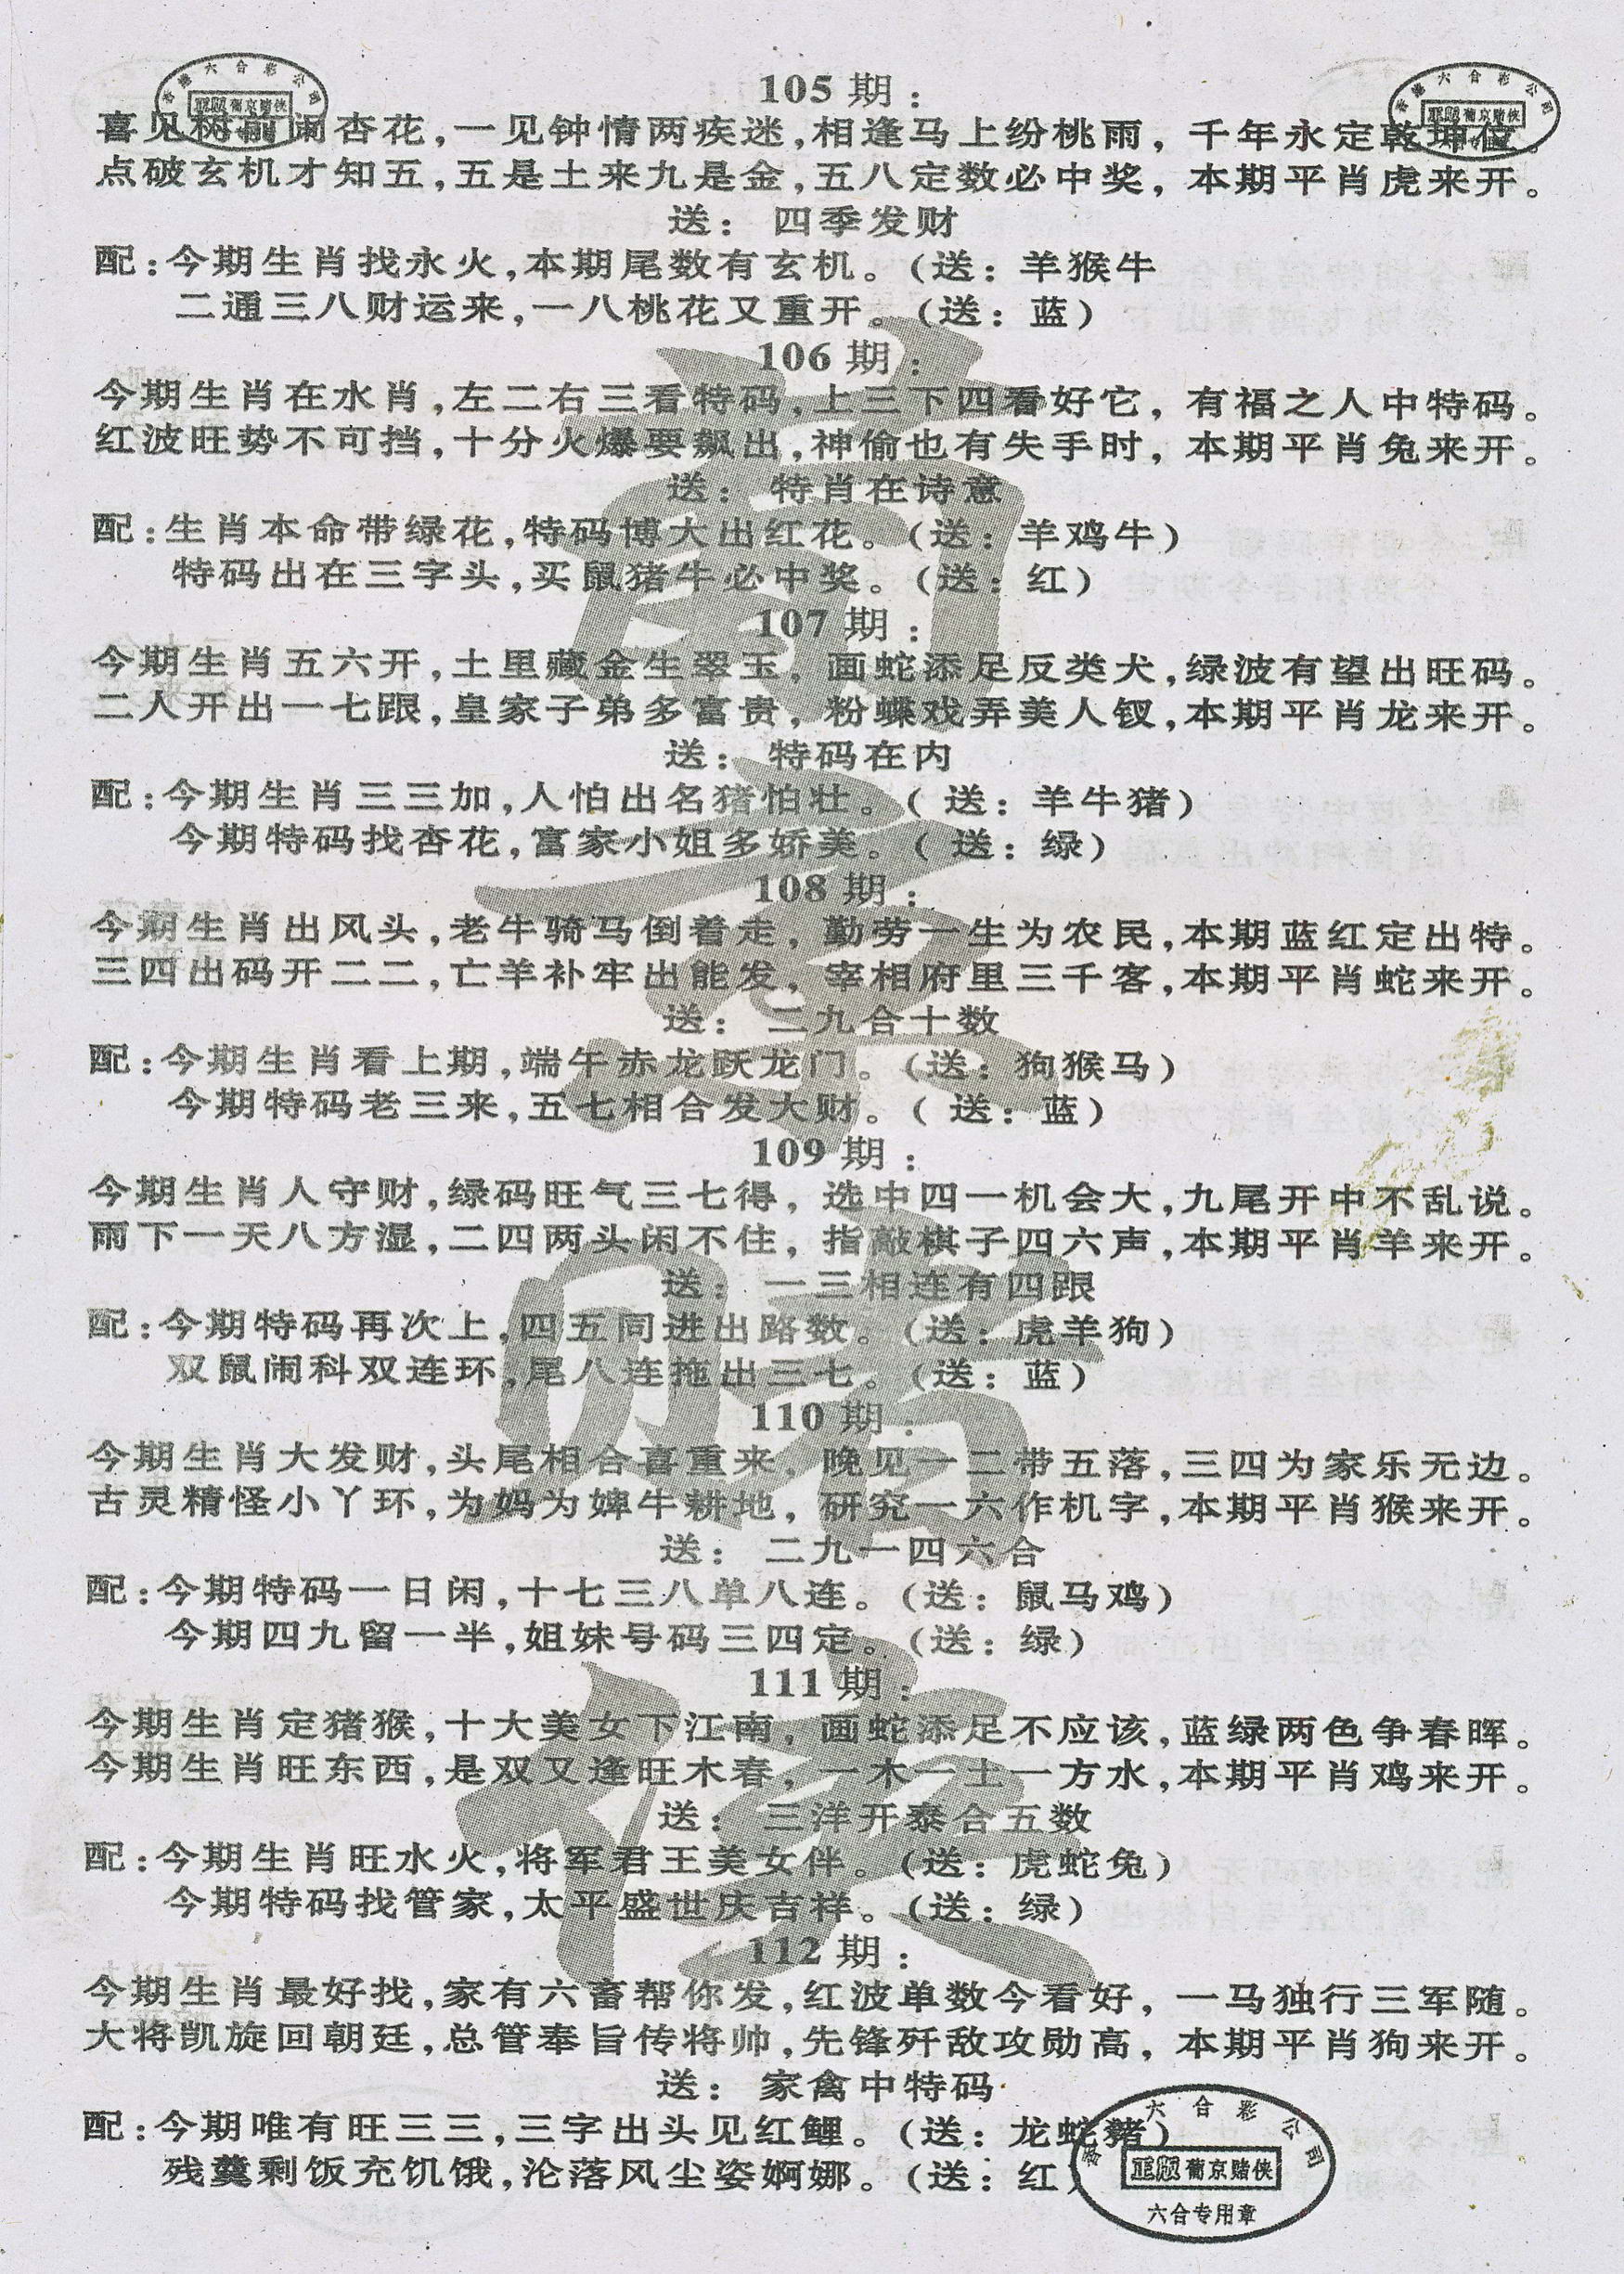 105 期：
喜见树前闹杏花，一见钟情两疾迷，相逢马上纷桃雨，千年永定乾坤位。
点破玄机才知五，五是土来九是金，五八定数必中奖，本期平肖虎来开。
送：四季发财
配：今期生肖找永火，本期尾数有玄机。（送：羊猴牛
二通三八财运来，一八桃花又重开。（送：蓝）
106 期：
今期生肖在水肖，左二右三看特码，上三下四看好它，有福之人中特码。
红波旺势不可挡，十分火爆要飙出，神偷也有失手时，本期平肖兔来开。
送：特肖在诗意
配：生肖本命带绿花，特码博大出红花。（送：羊鸡牛）
特码出在三字头，买鼠猪牛必中奖。（送：红）
107 期：
今期生肖五六开，土里藏金生翠玉，画蛇添足反类犬，绿波有望出旺码。
二人开出一七跟，皇家子弟多富贵，粉蝶戏弄美人钗，本期平肖龙来开。
送：特码在内
配：今期生肖三三加，人怕出名猪怕壮。（送：羊牛猪）
今期特码找杏花，富家小姐多娇美。（送：绿）
108 期：
今期生肖出风头，老牛骑马倒着走，勤劳一生为农民，本期蓝红定出特。
三四出码开二二，亡羊补牢出能发，宰相府里三千客，本期平肖蛇来开。
送：二九合十数
配：今期生肖看上期，端午赤龙跃龙门。（送：狗猴马）
今期特码老三来，五七相合发大财。（送：蓝）
109 期：
今期生肖人守财，绿码旺气三七得，选中四一机会大，九尾开中不乱说。
雨下一天八方湿，二四两头闲不住，指敲棋子四六声，本期平肖羊来开。
送：一三相连有四跟
配：今期特码再次上，四五同进出路数。（送：虎羊狗）
双鼠闹科双连环，尾八连拖出三七。（送：蓝）
110 期：
今期生肖大发财，头尾相合喜重来，晚见一二带五落，三四为家乐无边。
古灵精怪小丫环，为妈为婢牛耕地，研究一六作机字，本期平肖猴来开。
送：二九一四六合
配：今期特码一日闲，十七三八单八连。（送：鼠马鸡）
今期四九留一半，姐妹号码三四定。（送：绿）
111 期：
今期生肖定猪猴，十大美女下江南，画蛇添足不应该，蓝绿两色争春晖。
今期生肖旺东西，是双又逢旺木春，一木一土一方水，本期平肖鸡来开。
送：三洋开泰合五数
配：今期生肖旺水火，将军君王美女伴。（送：虎蛇兔）
今期特码找管家，太平盛世庆吉祥。（送：绿）
112 期：
今期生肖最好找，家有六畜帮你发，红波单数今看好，一马独行三军随。
大将凯旋回朝廷，总管奉旨传将帅，先锋歼敌攻勋高，本期平肖狗来开。
送：家禽中特码
配：今期唯有旺三三，三字出头见红鲤。（送：龙蛇豬）
残羹剩饭充饥饿，沦落风尘姿婀娜。（送：红）
香港六合彩公司
正版葡京赌侠
六合专用章
葡京赌侠